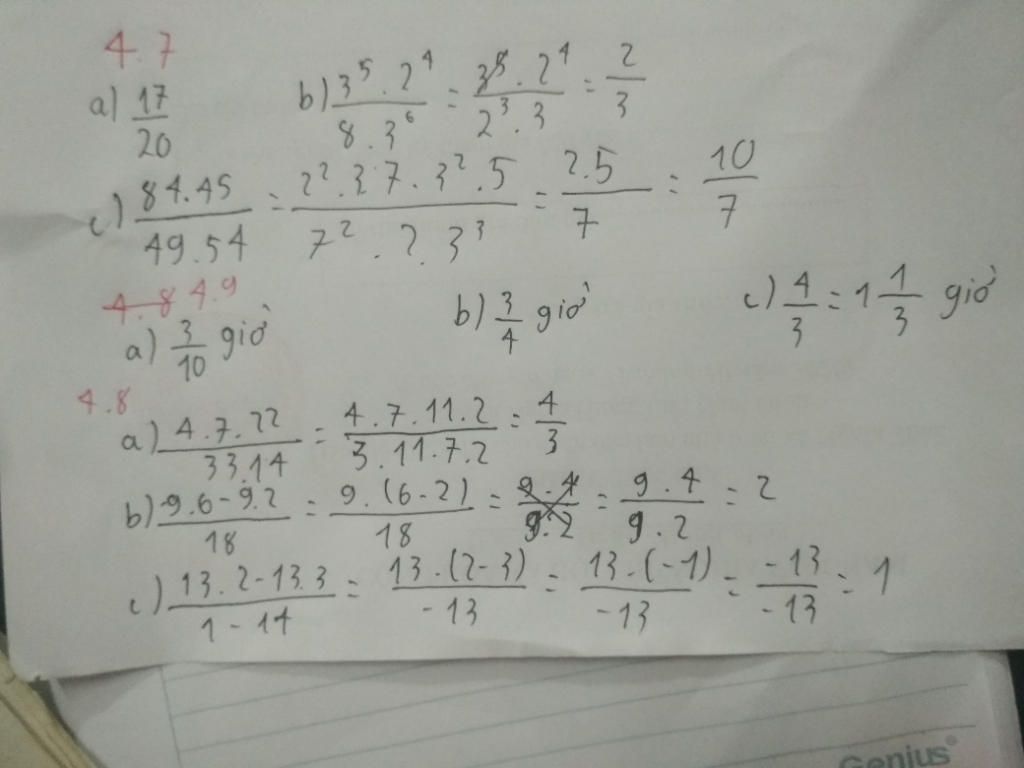 4.7
a) 17/20 b) 3^5 . 2^4 / 8 . 3^6 = 3^5 . 2^4 / 2^3 . 3 = 2/3
c) 84.45 / 49.54 = 2^2 . 3 7 . 3^2 . 5 / 7^2 . 2 . 3^3 = 2.5 / 7 = 10/7
4.8 4.9
a) 3/10 giờ b) 3/4 giờ c) 4/3 = 1 1/3 giờ
4.8
a) 4.7.22 / 33.14 = 4.7.11.2 / 3.11.7.2 = 4/3
b) 9.6-9.2 / 18 = 9.(6-2) / 18 = 9.4 / 9.2 = 9.4 / 9.2 = 2
c) 13.2-13.3 / 1-14 = 13.(2-3) / -13 = 13.(-1) / -13 = -13 / -13 = 1
Genius